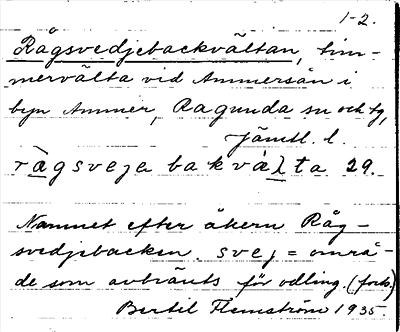 1-2.
Rågsvedjebackvältan, tim-
mervälta vid Ammersån i
byn Ammer, Ragunda sn och tg,
Jämtl. l.
rågsveja bakvälta 29.
Namnet efter åkern Råg-
svedjebacken. svej = områ-
de som avbränts för odling. (forts)
Bertil Flemström 1935